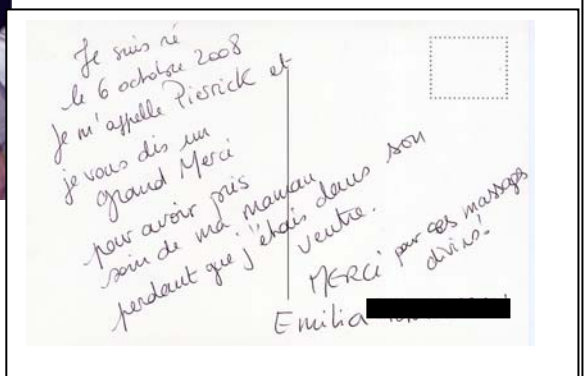 Je suis né
le 6 octobre 2008
Je m'appelle Pierrick et
je vous dis un
grand Merci
pour avoir pris
soin de ma maman
pendant que j'étais dans son
ventre.
MERCi pour ces massages
divins!
Emilia